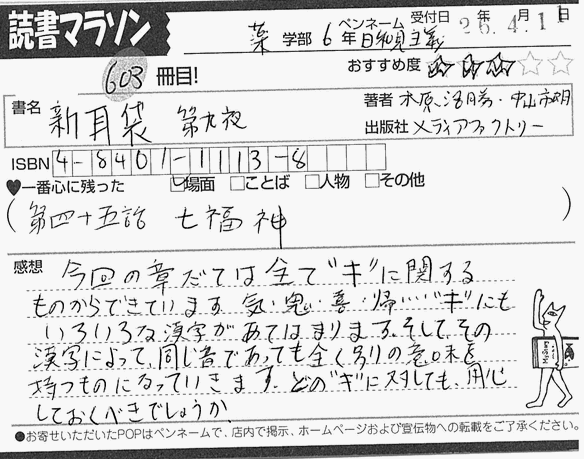 読書マラソン
薬 学部 6年 ペンネーム 日和見主義 受付日 26年4.月11日
603 冊目!
おすすめ度 ★★★☆☆
書名 新耳袋 第九夜
著者 木原浩勝・中山市朗
出版社 メディアファクトリー
ISBN 4-8401-1113-8
♥一番心に残った ☑場面 □ことば □人物 □その他
(第四十五話 七福神)
感想 今回の章だては全て"キ"に関する
ものからできています。気・鬼・喜・帰…"キ"にも
いろいろな漢字があてはまります。そして、その
漢字によって、同じ音であっても全く別の意味を
持つものになっていきます。どの"キ"に対しても、用心
しておくべきでしょうか。
●お寄せいただいたPOPはペンネームで、店内で掲示、ホームページおよび宣伝物への転載をご了承ください。